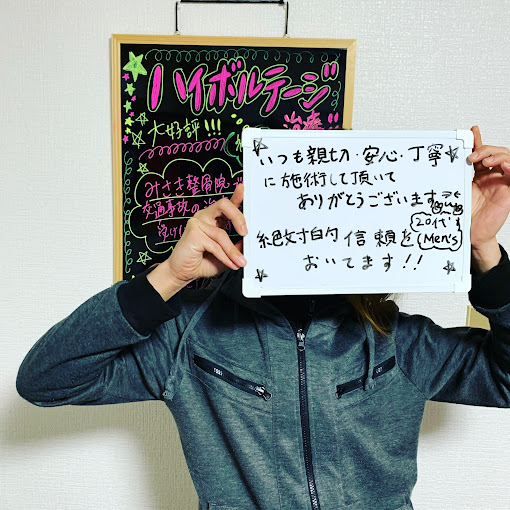 ハイボルテージ
大好評!!!
治療
みさき整骨院
交通事故の
いつも親切・安心・丁寧
に施術して頂いて
ありがとうございます
絶対的信頼を
20代
Men's
おいてます!!